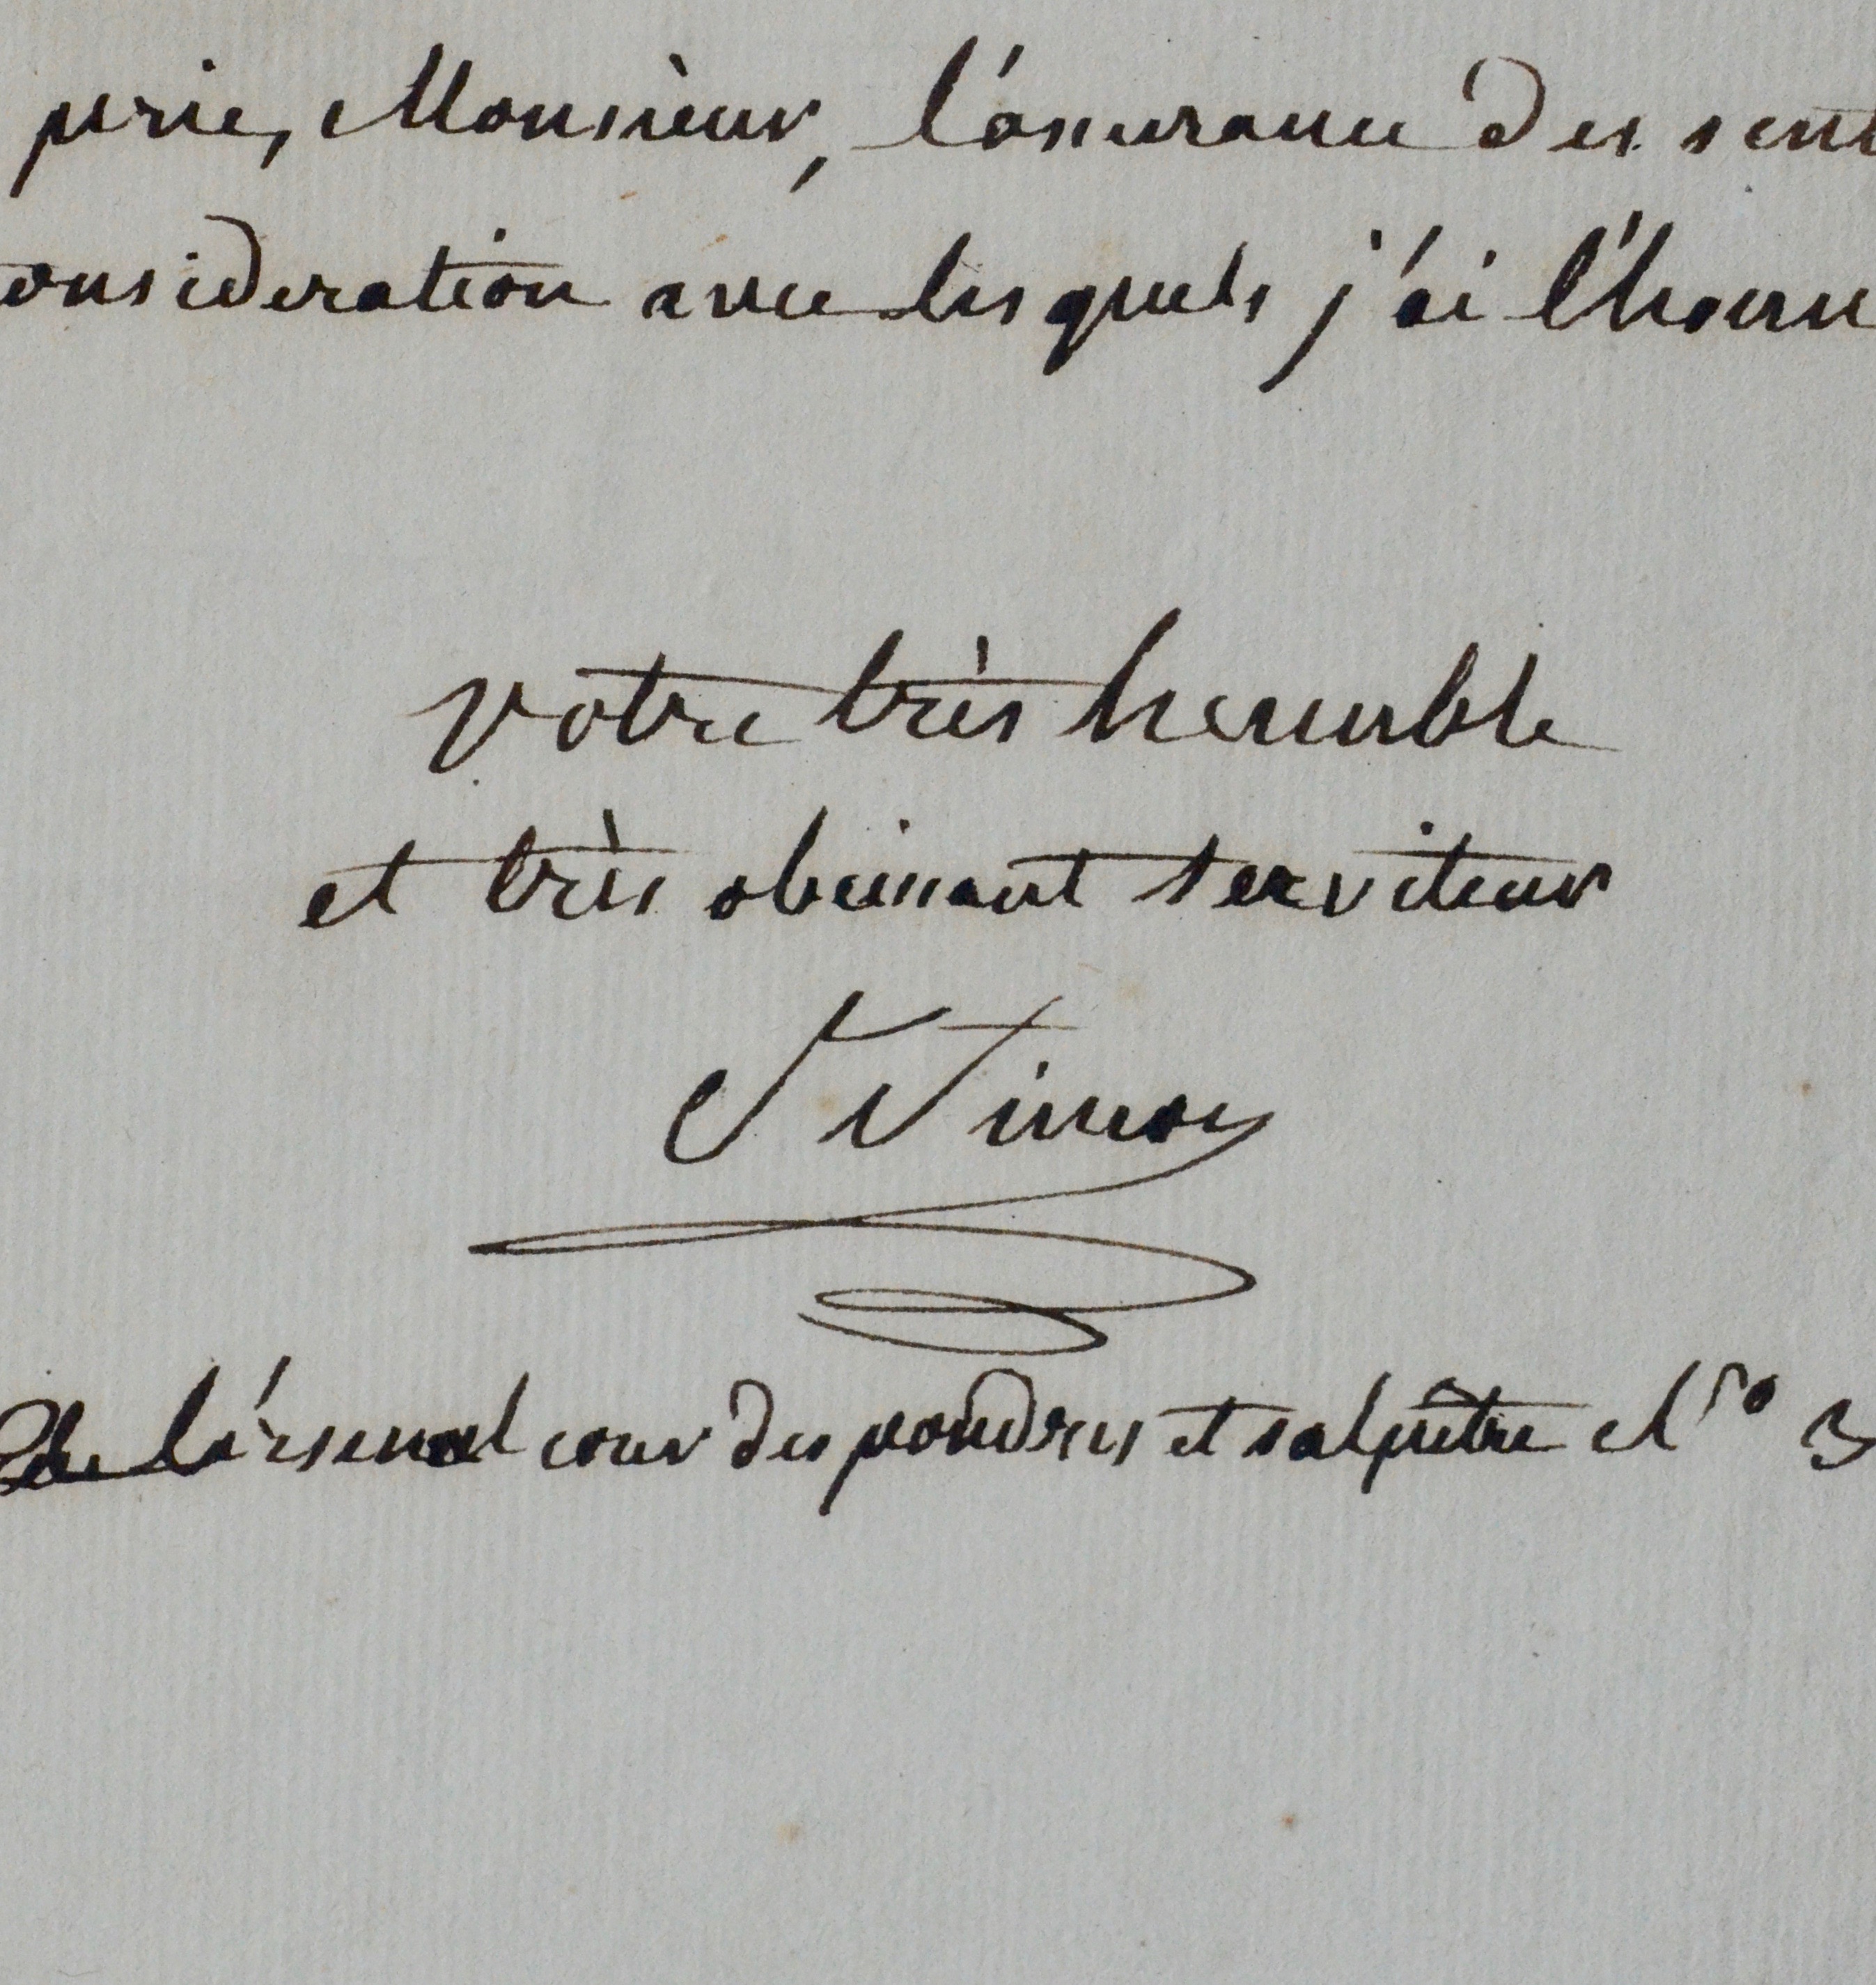 prie, Monsieur, l'assurance des sent
onsideration avec lesquels j'ai l'honn
votre très heumble
et très obeissant serviteur
St Simon
de l'arsenal cour des poudres et salpêtre N° 3